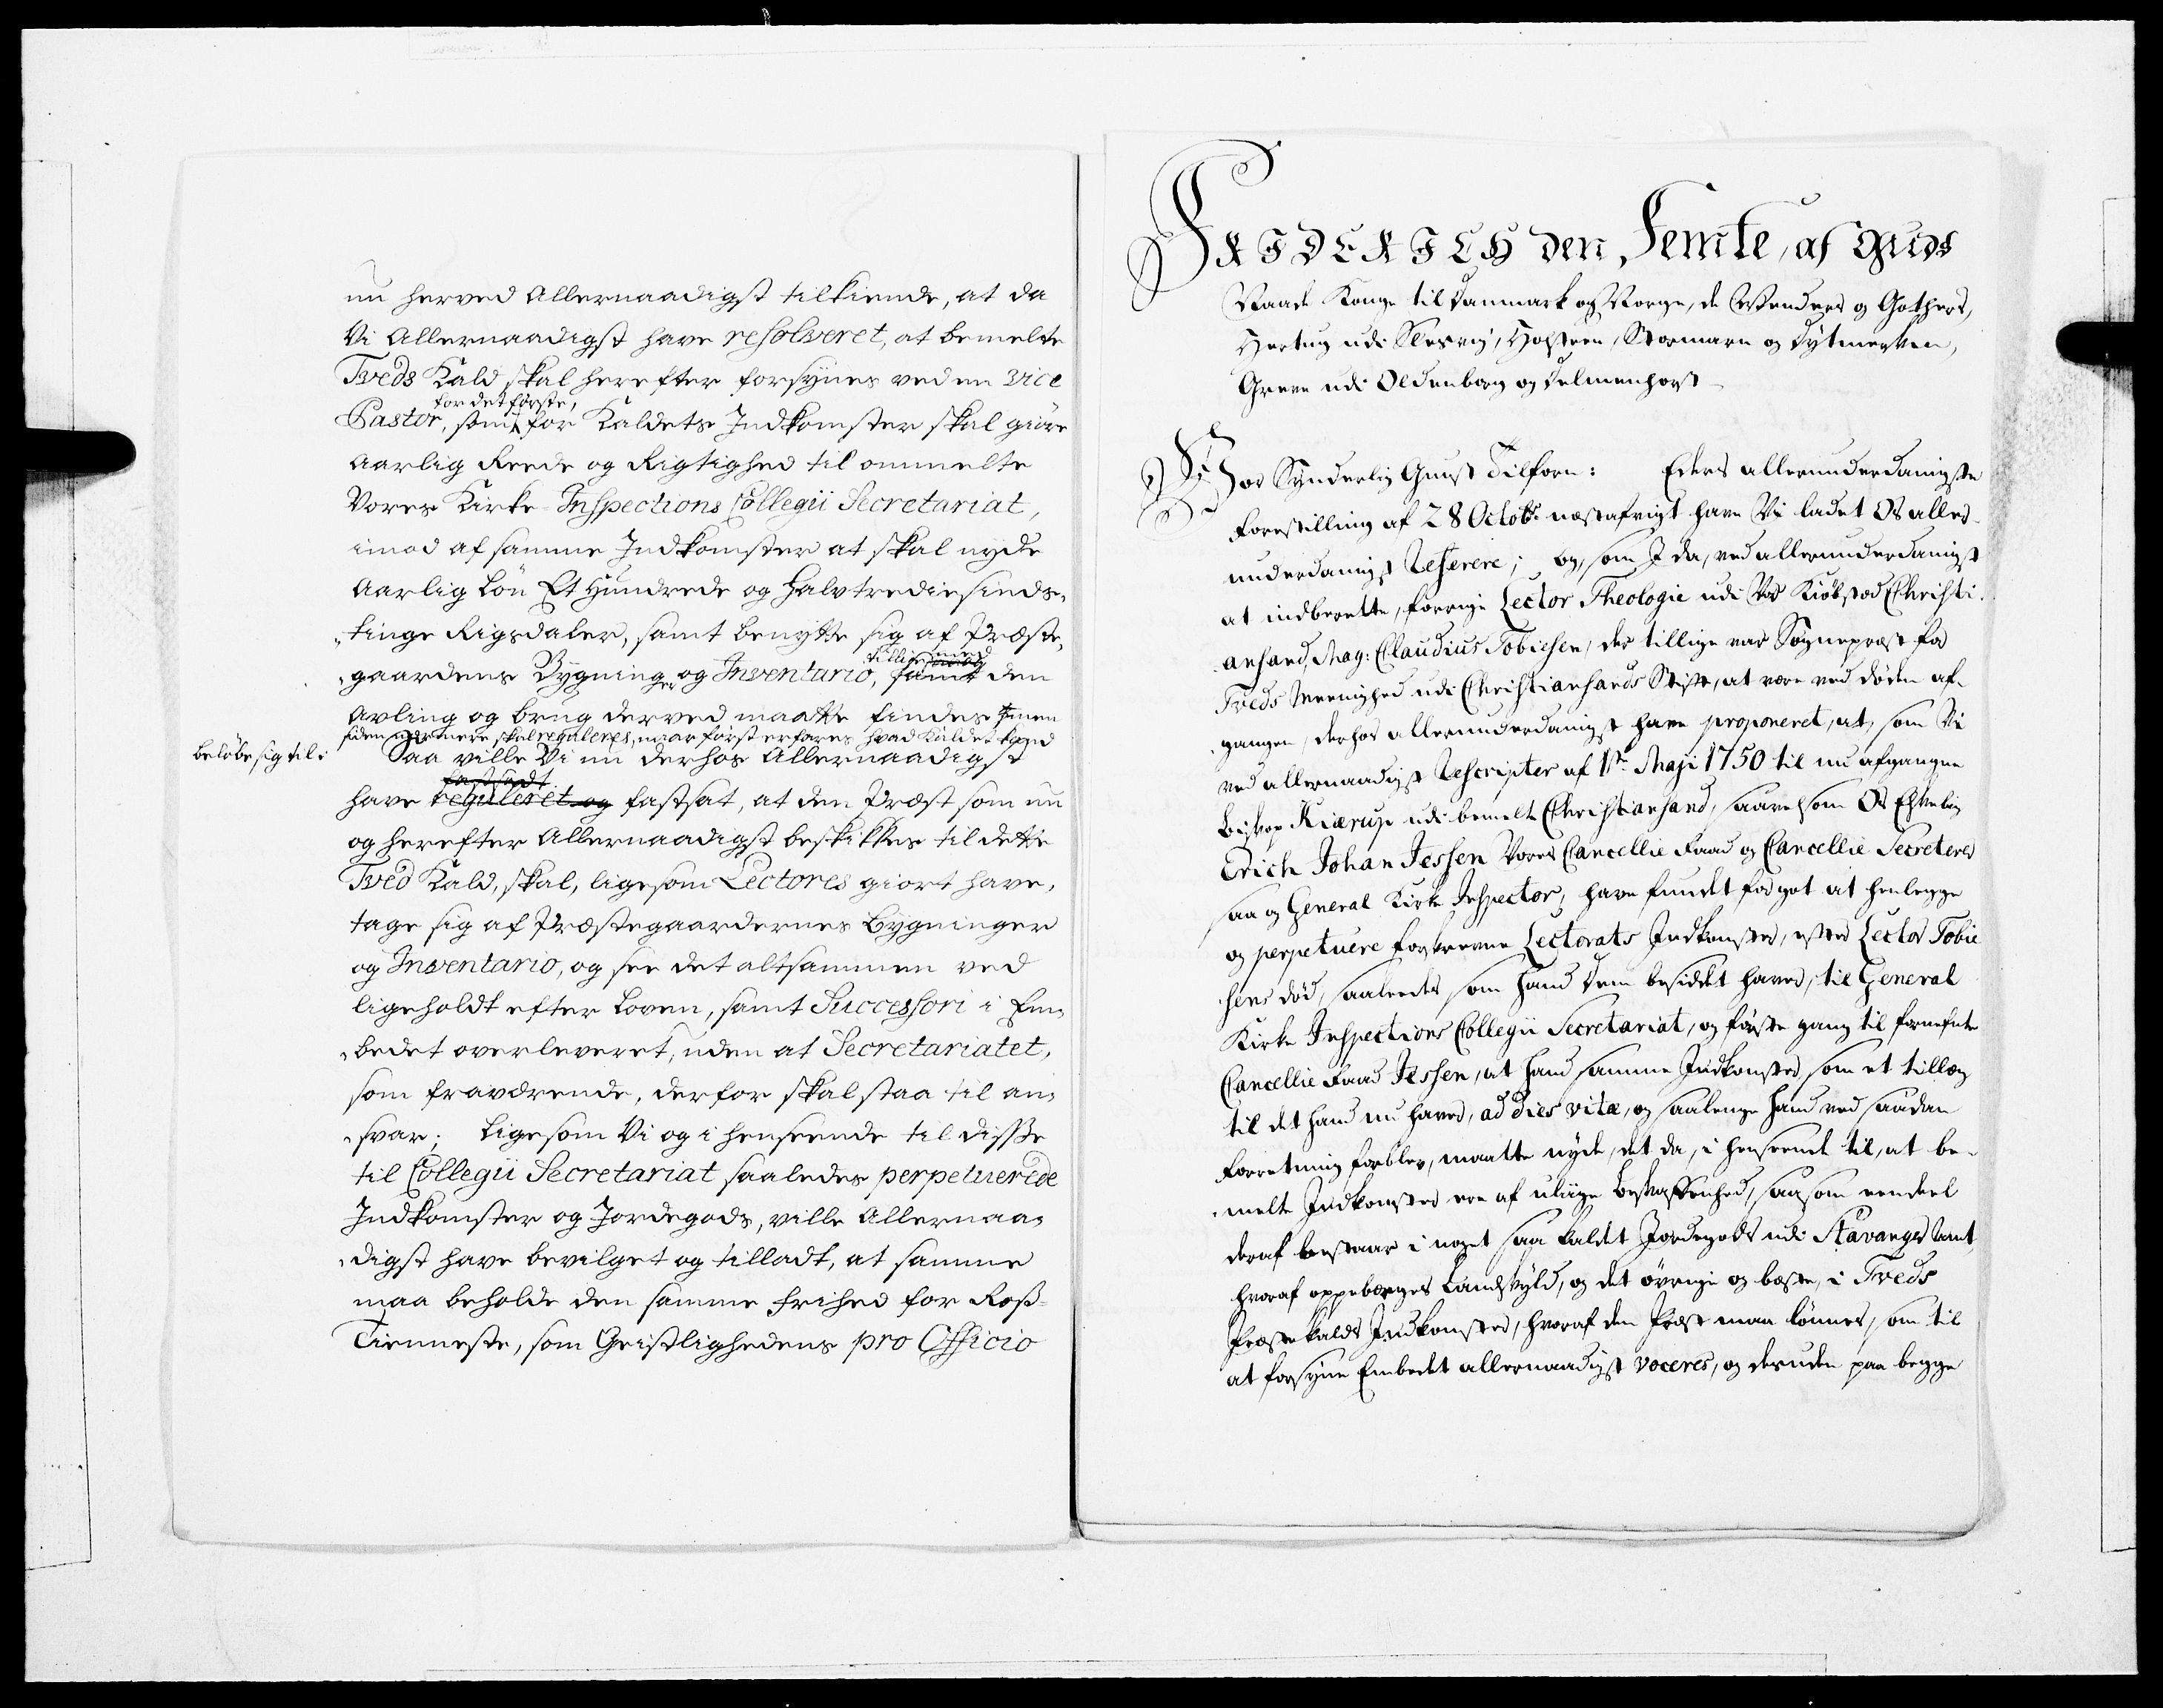 nu herved Allernaadigst tilkiende, at da
Vi Allernaadigst have resolveret, at bemelte
Tveds Kald skal herefter forsynes ved en vice
for det første,
Pastor, som for Kaldets Indkomster skal giøre
aarlig Reede og Rigtighed til ommelte
Vores Kirke-Inspections Collegii Secretariat,
imod af samme Indkomster at skal nyde
aarlig Løn Et Hundrede og Halvtrediesinds-
tinge Rigsdaler, samt benytte sig af Præste-
tillige med
gaardens Bygninger og Inventario, samt den
Avling og brug derved maatte findes men
siden nærmere skal reguleres, naar først erfares hvad Kaldet kand
beløbe sig til:
Saa ville Vi nu derhos Allernaadigst
fastsadt
have reguleret og fastsat, at den Præst som nu
og herefter Allernaadigst beskikkes til dette
Tved Kald, skal, ligesom Lectores giort have,
tage sig af Præstegaardernes Bygninger
og Inventario, og see det altsammen ved
ligeholdt efter Loven, samt Successori i Em-
bedet overleveret, uden at Secretariatet,
som fraværende, derfor skal staa til an-
svar; Ligesom Vi og i henseende til disse
til Collegii Secretariat saaledes perpetuerede
Indkomster og Jordegods, ville Allernaa-
digst have bevilget og tilladt, at samme
maa beholde den samme frihed for Ross-
Tienneste, som Geistlighedens pro Officio
FRIDERICH den Femte, af Guds
Naade Konge til Danmark og Norge, de Wenders og Gothers,
Hertug udi Slesvig, Holsteen, Stormarn og Dytmersken,
Greve udi Oldenborg og Delmenhorst
Vor Synderlig Gunst Tilforn: Eders allerunderdanigste
Forestilling af 28 Octobr. næstafvigt have Vi ladet Os aller-
underdanigst Referere; og, som I da, ved allerunderdanigst
at indberette, forrige Lector Theologie udi Vor Kiøbsted Christi-
ansand, Mag: Claudius Tobiesen, der tillige var Sognepræst for
Treds Meenighed udi Christiansands Stift, at være ved døden af-
gangen, derhos allerunderdanigst have proponeret, at, som Vi
ved allernaadigst Rescripter af 1ste Maji 1750 til nu afgangne
Biskop Kiærup udi bemelte Christiansand, saavelsom Os Elskelig
Erich Johan Jessen Vores Cancellie Raad og Cancellie Secreterer
saa og General Kirke Inspector, have fundet for got at henlegge
og perpetuere forskrevne Lectorats Indkomster, efter Lector Tobie
sens død, saaledes som hand dem besiddet haver, til General
Kirke Inspections Collegii Secretariat, og første gang til fornefnte
Cancellie Raad Jessen, at hand samme Indkomster, som et tillæg
til det hand nu haver, ad dies vitæ, og saalenge hand ved saadan
Forretning forblev, maatte nyde, det da, i henseende til, at be-
melte Indkomster ere af ulige beskaffenhed, saasom eendeel
deraf bestaar i noget saa kaldet Jordegods udi Stavanger Amt,
hvoraf oppebørges Landskyld, og det øvrige og beste, i Treds
Præste kalds Indkomster, hvoraf den Præst maa lønnes, som til
at forsyne Embedet allernaadigst voceres, og desuden paa begge